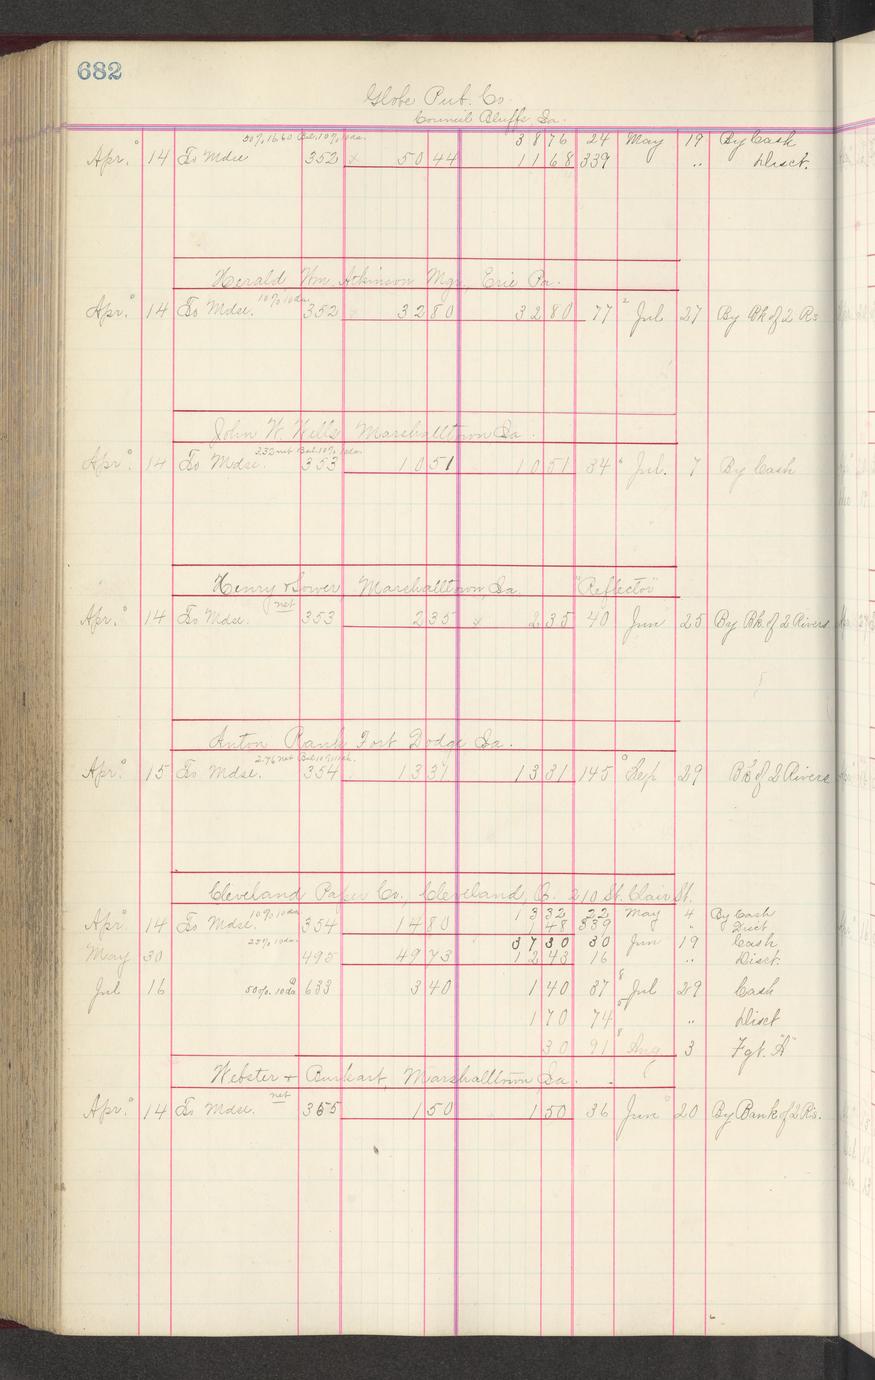 682
Globe Pub. Co.
Council Bluffs, Ia.
50% 16.60 Bal. 10% 10da. 38 76 24 May 19 By Cash
Apr. 14 To Mdse 352 50 44 11 68 339 " Disct.
Herald Wm. Atkinson Mgr., Erie Pa.
Apr. 14 To Mdse. 10% 10da. 352 32 80 32 80 77 Jul 27 By Bk of 2 Rs
John W. Wells Marshalltown Ia.
3.32 net Bal. 10% 10da.
Apr. 14 To Mdse. 353 10 51 10 51 34 Jul. 7 By Cash
Henry & Sower, Marshalltown, Ia. "Reflector"
Apr. 14 To Mdse. net 353 2 35 2 35 40 Jun 25 By Bk. of 2 Rivers
Anton Rank Fort Dodge Ia.
2.76 net Bal. 10%
Apr. 15 To Mdse. 354 13 31 13 31 145 Sep 29 Bk of 2 Rivers
Cleveland Paper Co., Cleveland, O. 210 St. Clair St.
10% 10da 13 32 22 May 4 By Cash
Apr. 14 To Mdse. 354 14 80 1 48 339 " Disct
25% 10da. 37 30 30 Jun 19 Cash
May 30 495 49 73 12 43 16 " Disct.
Jul 16 50% 10da 633 3 40 1 40 87 Jul 29 Cash
1 70 74 " Disct
30 91 Aug 3 Fgt. "A"
Webster & Burkart, Marshalltown Ia.
Apr. 14 To Mdse. net 355 1 50 1 50 36 Jun 20 By Bank of 2 Rs.